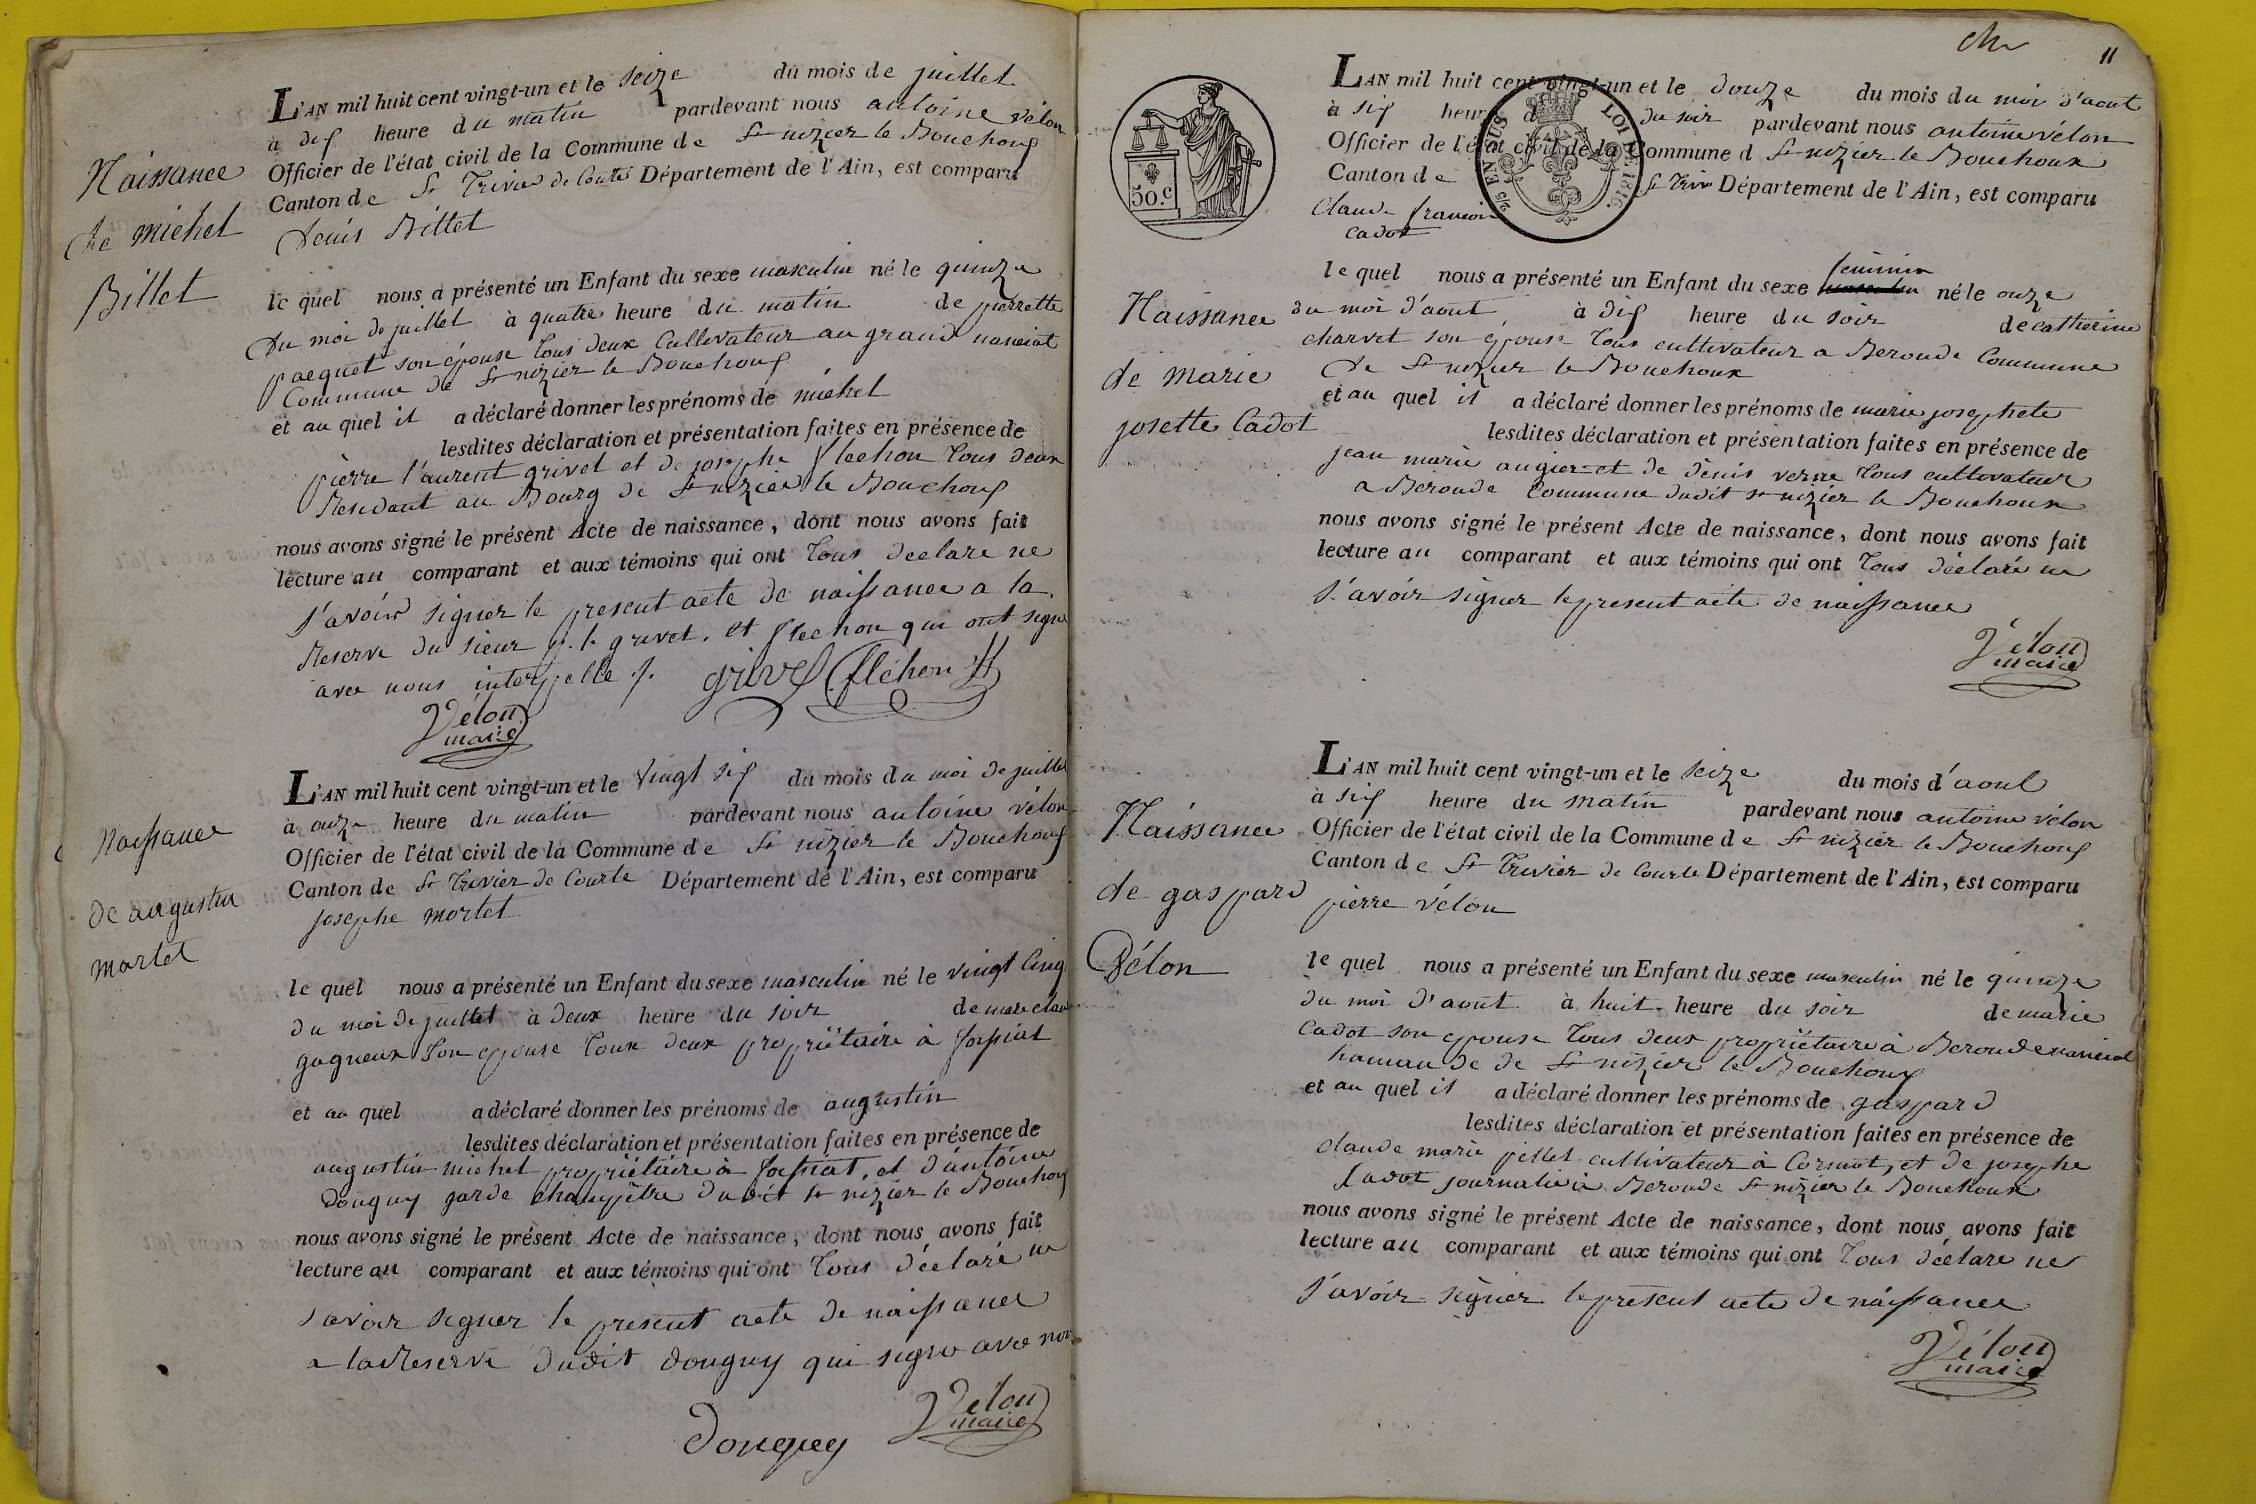 Naissance
de michel
Billet
L'AN mil huit cent vingt-un et le seize du mois de juillet
à dix heure du matin pardevant nous antoine vélon
Officier de l'état civil de la Commune de St nizier le Bouchoux
Canton de St Trivier de Courte Département de l'Ain, est comparu
denis Billet
le quel nous a présenté un Enfant du sexe masculin né le quinze
du moi de juillet à quatre heure du matin de pierrette
pacquet son épouse tous deux Cultivateur au grand
Commune de St nizier le Bouchoux
et au quel il a déclaré donner les prénoms de michel
lesdites déclaration et présentation faites en présence de
pierre l'aurent grivel et de josephe flechon tous deux
Residant au Bourg de St nizier le Bouchoux
nous avons signé le présent Acte de naissance, dont nous avons fait
lecture au comparant et aux témoins qui ont tous declare ne
s'avoir signer le present acte de naissance a la
Reserve du sieur p. l. grivel. et flechon qui ont signe
avec nous interpelle ./.
grivel fléhon
Vélon
maire
naissance
de augustin
mortel
L'AN mil huit cent vingt-un et le vingt six du mois du moi de juillet
à onze heure du matin pardevant nous antoine vélon
Officier de l'état civil de la Commune de St nizier le Bouchoux
Canton de St Trivier de Courte Département de l'Ain, est comparu
josephe mortet
le quel nous a présenté un Enfant du sexe masculin né le vingt cinq
du moi de juillet à deux heure du soir de marie
gagneux son epouse toux deux propriétaire à
et au quel a déclaré donner les prénoms de augustin
lesdites déclaration et présentation faites en présence de
augustin michel propriétaire à et d'antoine
donguy garde champêtre dudit St nizier le Bouchoux
nous avons signé le présent Acte de naissance, dont nous avons fait
lecture au comparant et aux témoins qui ont tous déclaré ne
s'avoir signer le present acte de naissance
a la Reserve dudit donguy qui signe avec nous
Vélon
maire
donguy
ch 11
50.c
2/5 EN SUS LOI DE 1816.
Naissance
de marie
josette Cadot
L'AN mil huit cent vingt-un et le douze du mois du moi d'aout
à six heure du soir pardevant nous antoine vélon
Officier de l'état civil de la Commune d St nizier le Bouchoux
Canton de St Triv Département de l'Ain, est comparu
Claude francois
cadot
feminin
le quel nous a présenté un Enfant du sexe masculin né le onze
du moi d'aout à dix heure du soir de catherine
charvet son épouse tous cultivateur a Beroude Commune
de St nizier le Bouchoux
et au quel il a déclaré donner les prénoms de marie josephete
lesdites déclaration et présentation faites en présence de
jean marie augier et de dénis verne tous cultivateur
a Beroude Commune dudit St nizier le Bouchoux
nous avons signé le présent Acte de naissance, dont nous avons fait
lecture au comparant et aux témoins qui ont tous déclaré ne
s'avoir signer le present acte de naissance
Vélon
maire
Naissance
de gaspard
Vélon
L'AN mil huit cent vingt-un et le seize du mois d'aout
à six heure du matin pardevant nous antoine vélon
Officier de l'état civil de la Commune de St nizier le Bouchoux
Canton de St Trivier de Courte Département de l'Ain, est comparu
pierre vélon
le quel nous a présenté un Enfant du sexe masculin né le quinze
du moi d'aout à huit heure du soir de marie
Cadot son epouse tous deux propriétaire à Beroude
hamau de de St nizier le Bouchoux
et au quel il a déclaré donner les prénoms de gaspard
lesdites déclaration et présentation faites en présence de
claude marie pellet cultivateur à Cormot, et de josephe
Cadot journalié à Beroude St nizier le Bouchoux
nous avons signé le présent Acte de naissance, dont nous avons fait
lecture au comparant et aux témoins qui ont tous déclare ne
s'avoir signer le present acte de naissance
Vélon
maire